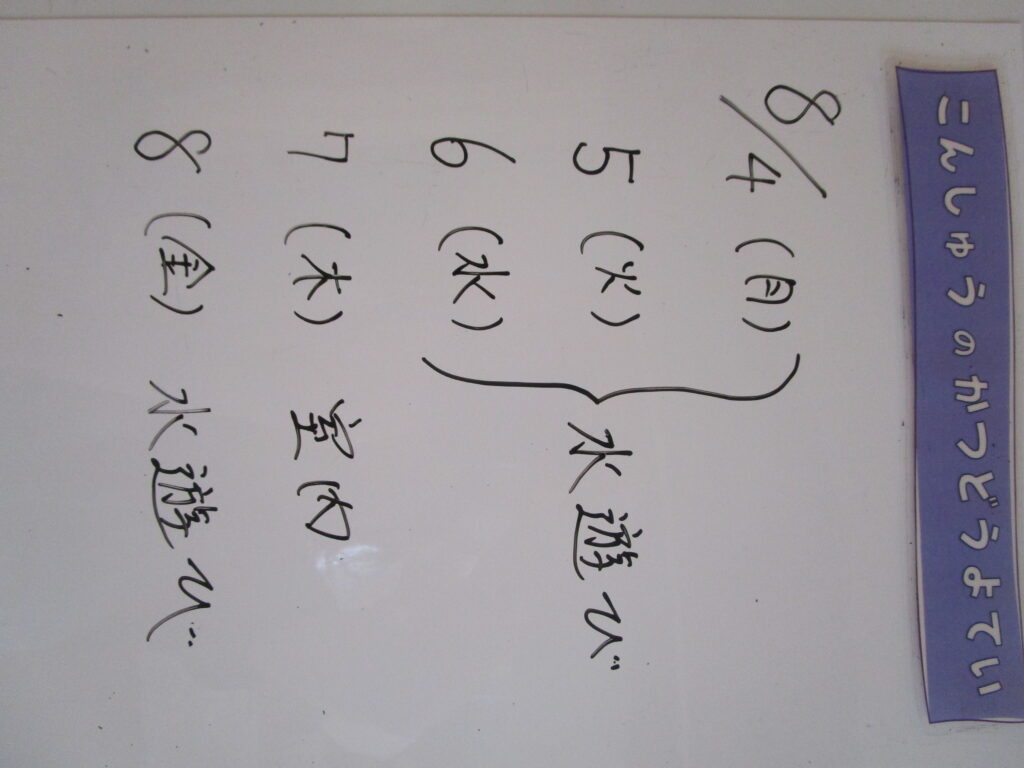 こんしゅうのかつどうよてい
8/4 (月)
5 (火) 水遊び
6 (水)
7 (木) 室内
8 (金) 水遊び